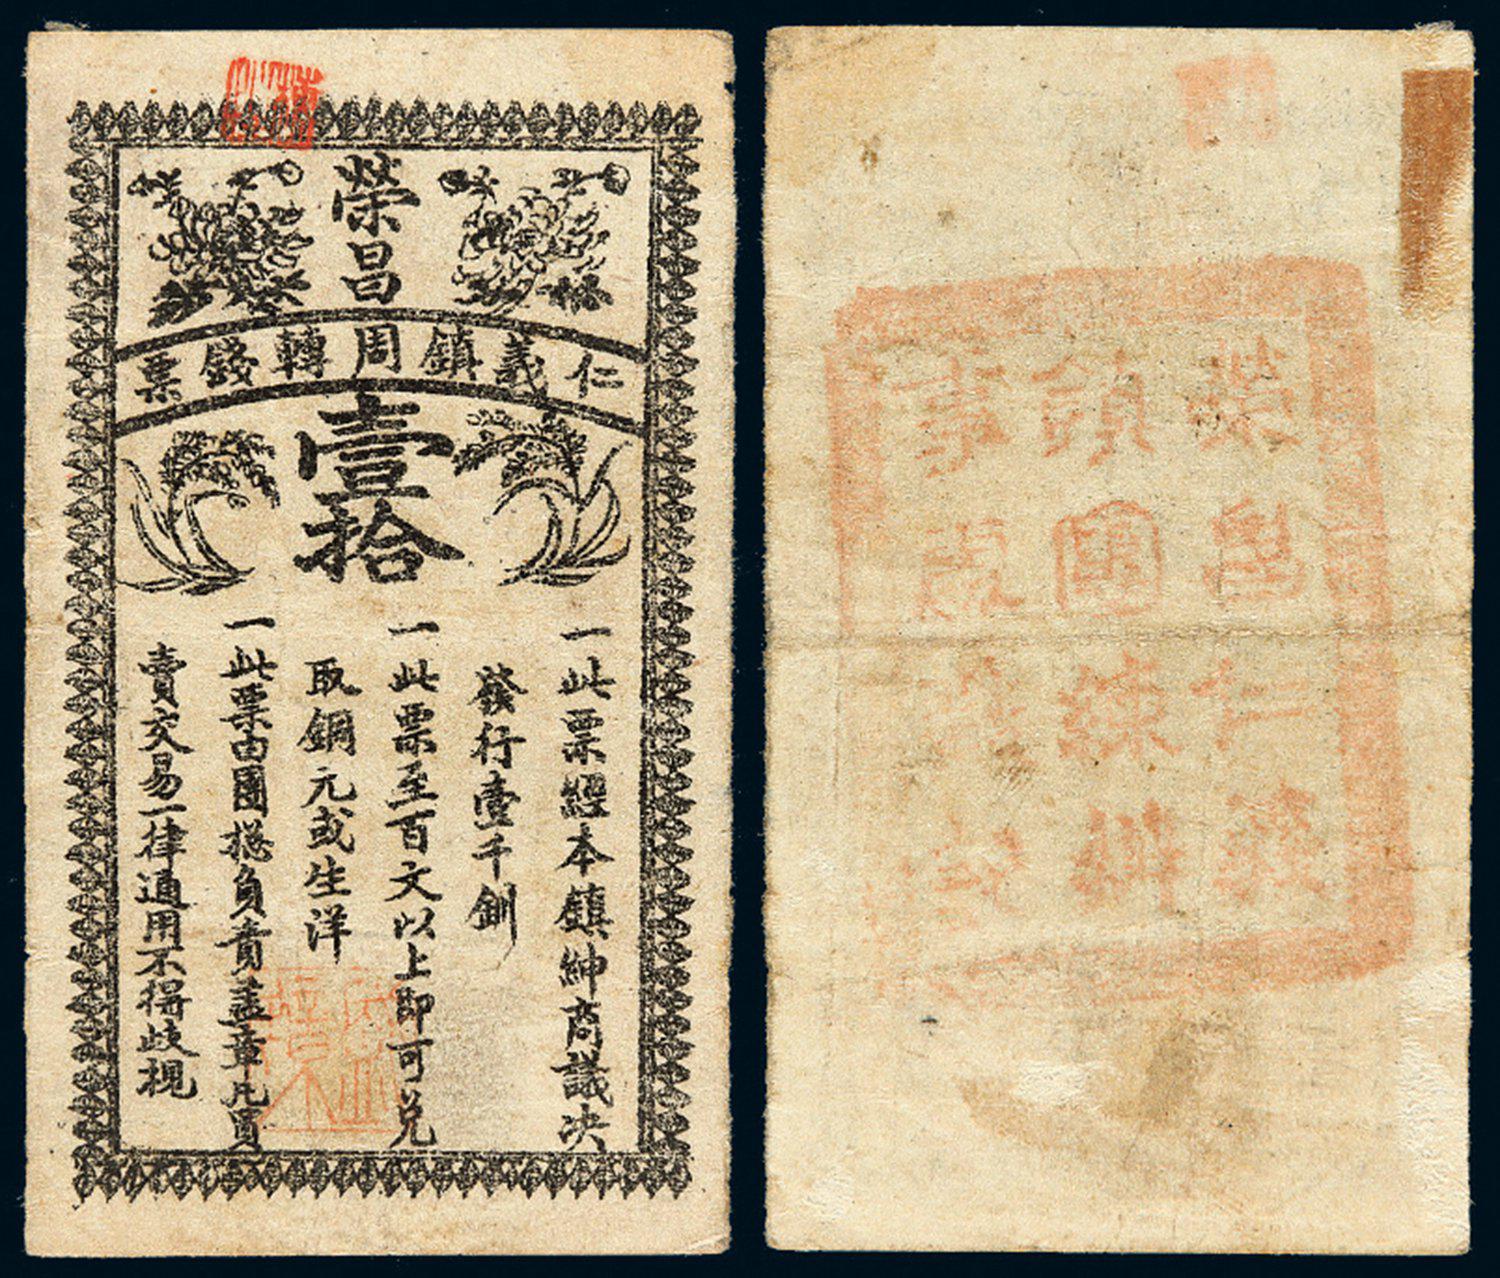 榮昌
仁義鎮周轉錢票
壹拾
一此票經本鎮紳商議決
發行壹千釧
一此票至百文以上即可兑
取銅元或生洋
一此票由團揔負責盖章凡買
賣交易一律通用不得歧視
榮昌仁義
鎮團練辦
事